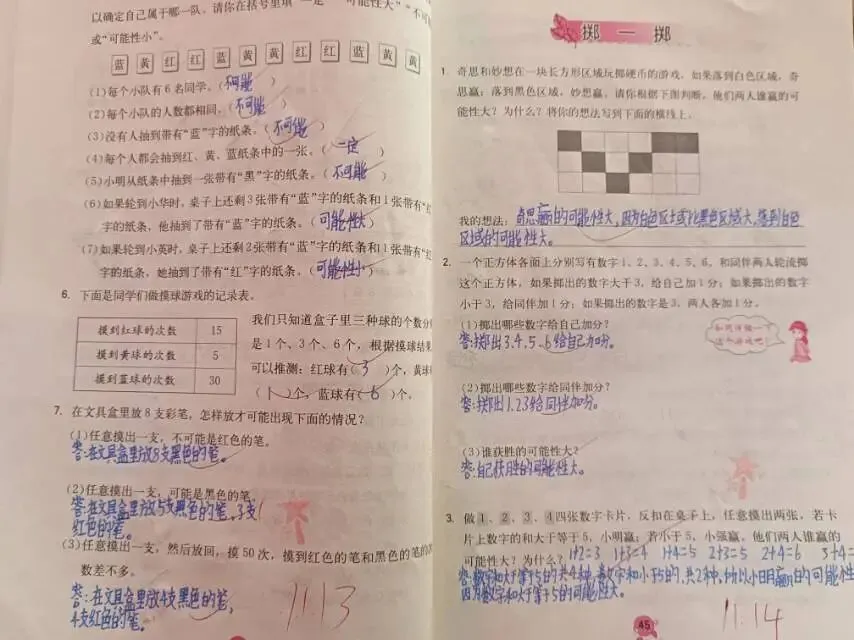 以确定自己属于哪一队。请你在括号里填“一定”“可能性大”“不可
或“可能性小”。
蓝 黄 红 红 蓝 黄 黄 红 红 蓝 黄 黄
(1)每个小队有6名同学。(不可能)
(2)每个小队的人数都相同。(不可能)
(3)没有人抽到带有“蓝”字的纸条。(不可能)
(4)每个人都会抽到红、黄、蓝纸条中的一张。(一定)
(5)小明从纸条中抽到一张带有“黑”字的纸条。(不可能)
(6)如果轮到小华时,桌子上还剩3张带有“蓝”字的纸条和1张带有“红
字的纸条,他抽到了带有“蓝”字的纸条。(可能性大)
(7)如果轮到小英时,桌子上还剩2张带有“蓝”字的纸条和1张带有“红
字的纸条,她抽到了带有“红”字的纸条。(可能性小)
6. 下面是同学们做摸球游戏的记录表。
摸到红球的次数 15
摸到黄球的次数 5
摸到蓝球的次数 30
我们只知道盒子里三种球的个数分
是1个、3个、6个,根据摸球结果
可以推测:红球有(3)个,黄球
(1)个,蓝球有(6)个。
7. 在文具盒里放8支彩笔,怎样放才可能出现下面的情况?
(1)任意摸出一支,不可能是红色的笔。
答:在文具盒里放8支黑色的笔。
(2)任意摸出一支,可能是黑色的笔。
答:在文具盒里放5支黑色的笔。3支
红色的笔。
(3)任意摸出一支,然后放回,摸50次,摸到红色的笔和黑色的笔的
数差不多。
答:在文具盒里放4支黑色的笔,
4支红色的笔。
11.13
掷一掷
1. 奇思和妙想在一块长方形区域玩掷硬币的游戏,如果落到白色区域,奇
思赢;落到黑色区域,妙想赢。请你根据下图判断,他们两人谁赢的可
能性大?为什么?将你的想法写到下面的横线上。
我的想法:奇思赢的可能性大,因为白色区域比黑色区域大,落到白色
区域的可能性大。
2. 一个正方体各面上分别写有数字1、2、3、4、5、6,和同伴两人轮流掷
这个正方体,如果掷出的数字大于3,给自己加1分;如果掷出的数字
小于3,给同伴加1分;如果掷出的数字是3,两人各加1分。
(1)掷出哪些数字给自己加分?
答:掷出3.4.5.6给自己加分。
和同伴做一
这个游戏吧!
(2)掷出哪些数字给同伴加分?
答:掷出1.2.3给同伴加分。
(3)谁获胜的可能性大?
答:自己获胜的可能性大。
3. 做1、2、3、4四张数字卡片,反扣在桌子上,任意摸出两张,若卡
片上数字的和大于等于5,小明赢;若小于5,小强赢。他们两人谁赢的
可能性大?为什么? 1+2=3 1+3=4 1+4=5 2+3=5 2+4=6 3+4=
答:数字和大于等于5的共4种,数字和小于5的,共2种,所以小明赢的可能性
因为数字和大于等于5的可能性大。
45
11.14